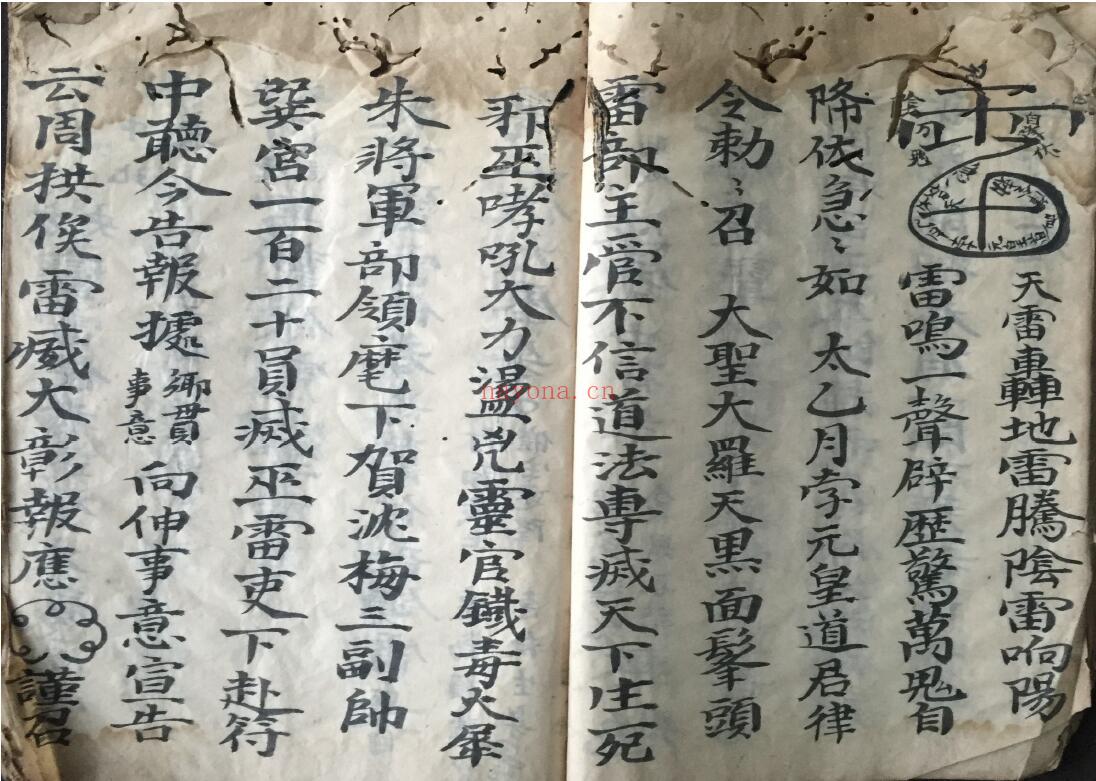 天雷轟地雷騰陰雷响陽
雷鳴一聲辟歷驚萬鬼自
降依急〻如 太乙月孛元皇道君律
令勅〻召 大聖大羅天黑面髼頭
雷部主管不信道法專滅天下生死
邪巫哮吼大力溫兇靈官鐵毒大犀
朱將軍部領麾下賀沈梅三副帥
巽宮一百二十員滅巫雷吏下赴符
中聽今告報據鄉貫事意向伸事意宣告
云周拱俟雷威大彰報應 謹召
nayona.cn